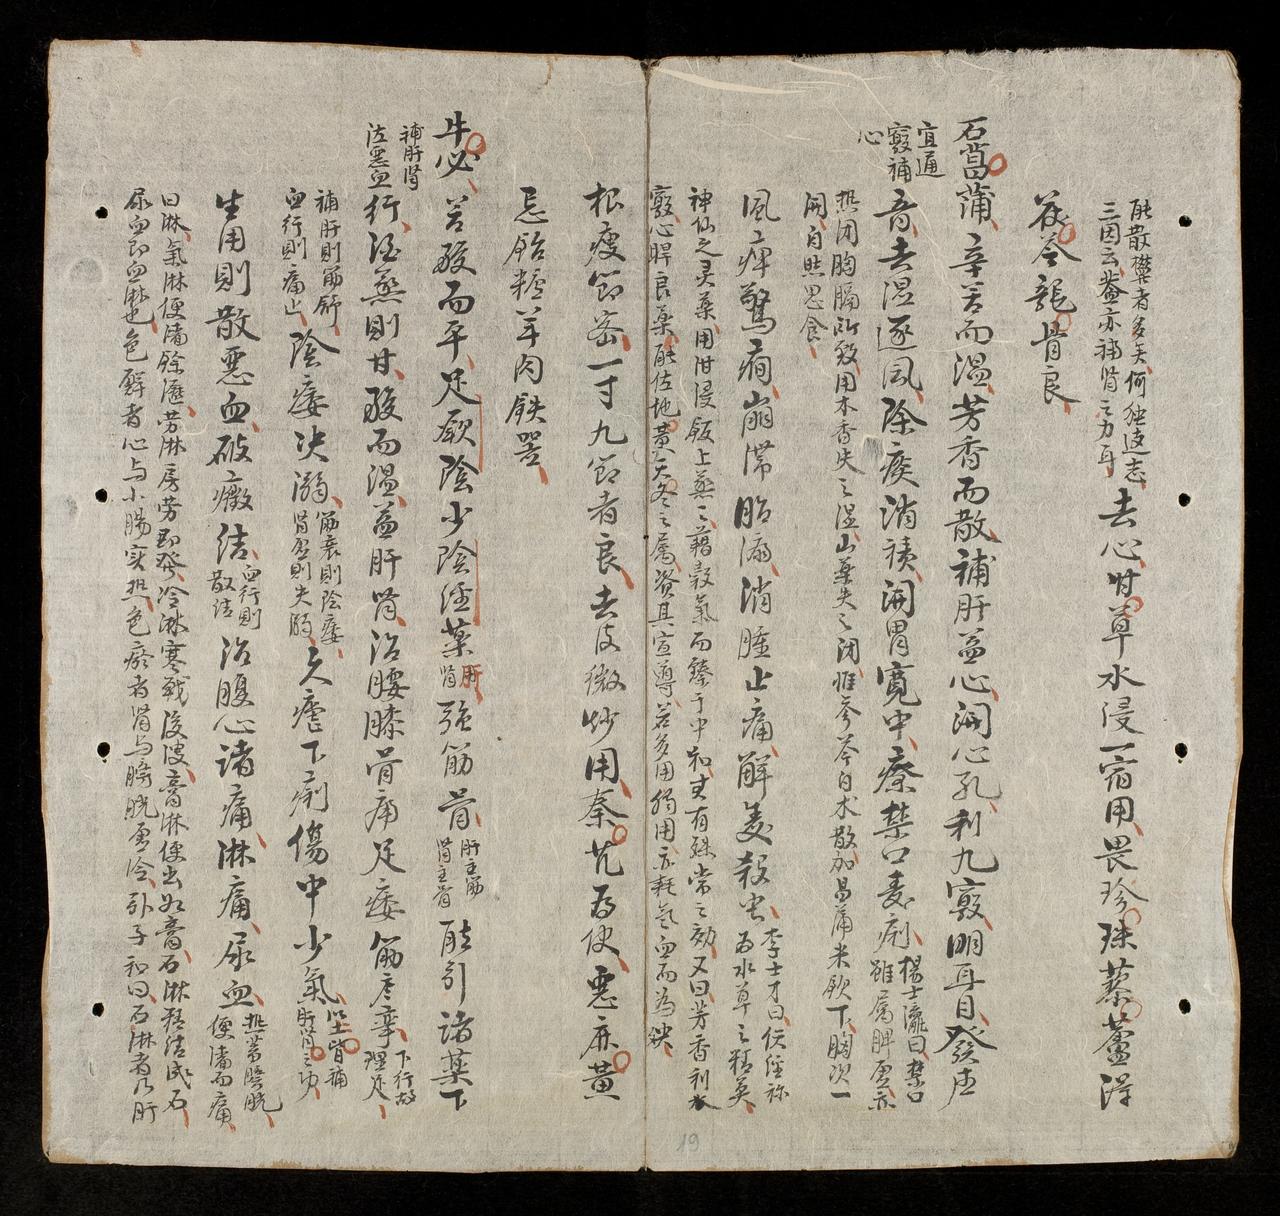 能散鬱者多矣何独遠志
三因云蓋亦補腎之力耳
去心甘草水浸一宿用畏珍珠藜蘆得
茯苓龍骨良
石菖蒲
宜通
竅補
心
辛苦而温芳香而散補肝益心開心孔利九竅明耳目發声
音去湿逐風除痰消積開胃寛中療禁口毒痢
楊士瀛曰禁口
雖属脾虚亦
热闭胸膈所致用木香失之湿山藥失之闭惟參苓白朮散加菖蒲米飲下胸次一
開自然思食
風痺驚癇崩帶胎漏消腫止痛解毒殺虫
李士才曰仙經称
為水草之精英
神仙之灵藥用泔浸飯上蒸之藉穀氣而臻于中和真有殊常之効又曰芳香利
竅心脾良藥能佐地黄天冬之属資其宣導若多用獨用亦耗氣血而為殃
根瘦節密一寸九節者良去皮微炒用秦艽為使惡麻黄
忌飴糖羊肉铁器
牛必
補肝腎
泣惡血
苦酸而平足厥陰少陰經藥
肝
腎
强筋骨
肝主筋
腎主骨
能引諸藥下
行酒蒸則甘酸而温益肝腎治腰膝骨痛足痿筋孪
下行故
理足
補肝則筋舒
血行則痛止
陰痿失溺
筋衰則陰痿
腎虚則失溺
久瘧下痢傷中少氣
以上皆補
肝腎之功
生用則散惡血破癥结
血行則
散结
治腹心诸痛淋痛尿血
热蓄膀胱
便濇而痛
曰淋氣淋便濇餘瀝劳淋房劳即發冷淋寒戦後溲膏淋便出如膏石淋精结成石
尿血即血淋也色鲜者心与小腸实热色瘀者腎与膀胱虚冷卧子和曰石淋者乃肝
19